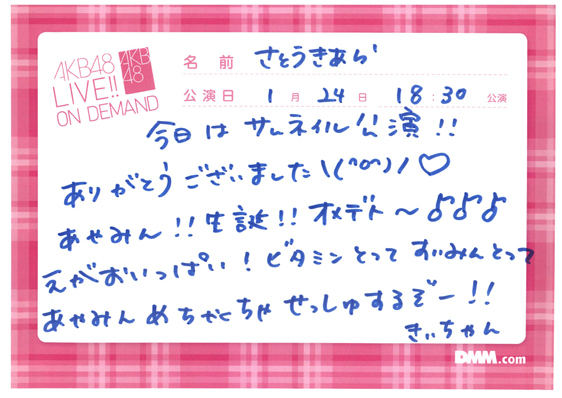 AKB48
LIVE!!
ON DEMAND
AKB
48
名前 さとうきあら
公演日 1月24日 18:30 公演
今日は サムネイル公演!!
ありがとうございました\(^o^)/♡
あやみん!!生誕!!オメデト〜♪♪♪
えがおいっぱい!ビタミンとって すいみんとって
あやみん めちゃくちゃ せっしゅするぞー!!
きぃちゃん
DMM.com